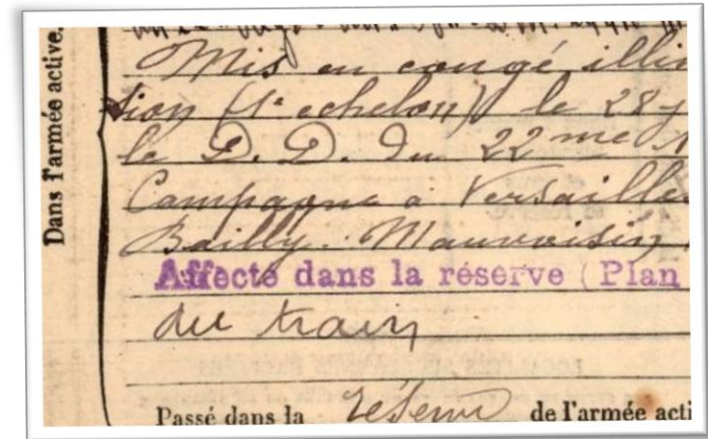 Dans l'armée active.
Mis en congé illim
sion (1e echelon) le 28 j
le D. D. du 22me
Campagne à Versailles
Bailly. Mauvoisin.
Affecté dans la réserve (Plan
du train
Passé dans la réserve de l'armée acti